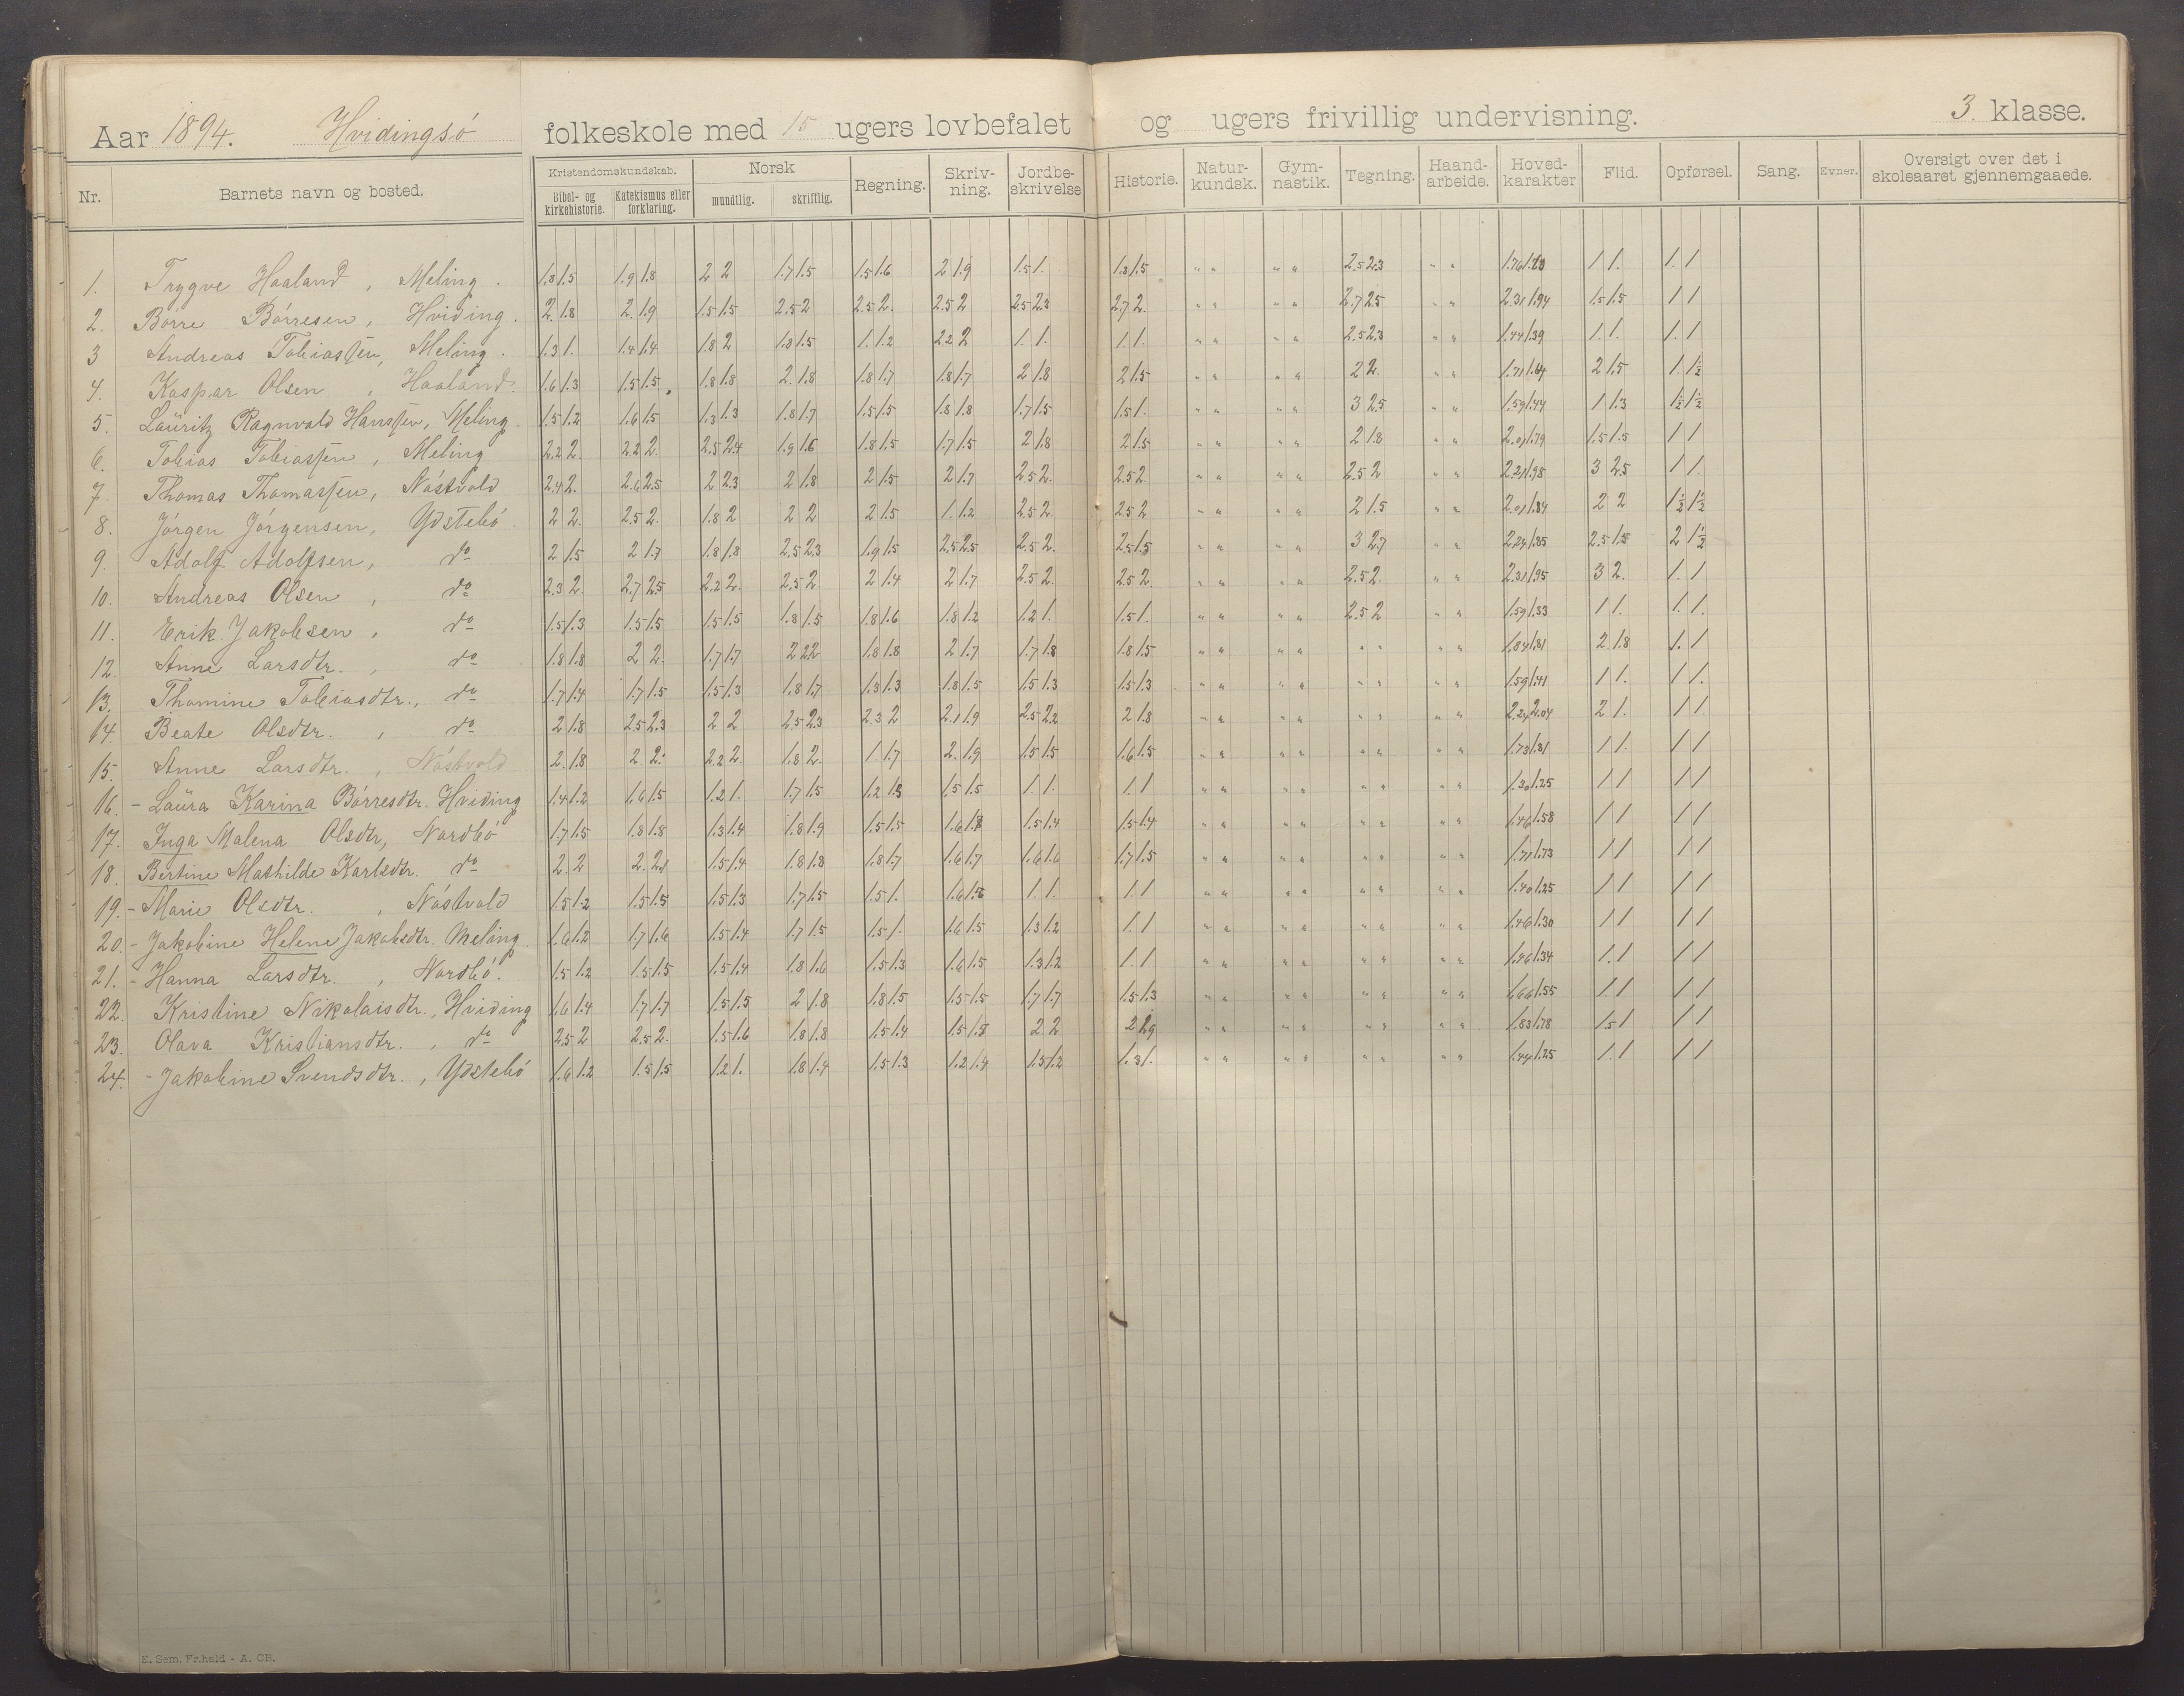 Aar 1894. Hvidingsö folkeskole med 15 ugers lovbefalet og ugers frivillig undervisning. 3. klasse.
Nr. Barnets navn og bosted. Kristendomskundskab. Norsk Regning. Skriv-ning. Jordbe-skrivelse Historie. Natur-kundsk. Gym-nastik. Tegning. Haand-arbeide. Hoved-karakter Flid. Opførsel. Sang. Evner. Oversigt over det i skoleaaret gjennemgaaede.
Bibel- og kirkehistorie. Katekismus eller forklaring. mundtlig. skriftlig.
1. Trygve Haaland, Meling. 1.8 1.5 1.9 1.8 2 2 1.7 1.5 1.5 1.6 2 1.9 1.5 1. 1.8 1.5 " " " " 2.5 2.3 " " 1 1. 1. 1
2. Börre Börresen, Hviding. 2. 1.8 2. 1.9 1.5 1.5 2.5 2 2.5 2. 2.5 2 2.5 2.3 2.7 2. " " " " 2.7 2.5 " " 2.31 1.94 1.5 1.5 1 1
3 Andreas Tobiassen, Meling. 1.3 1. 1.4 1.4 1.8 2 1.8 1.5 1. 1.2 2.2 2 1. 1. 1. 1. " " " " 2.5 2.3 " " 1.44 1.39 1. 1. 1. 1
4. Kaspar Olsen, Haaland. 1.6 1.3 1.5 1.5 1.8 1.8 2. 1.8 1.8 1.7 1.8 1.7 2 1.8 2 1.5 " " " " 2 2. " " 1.71 1.64 2 1.5 1. 1½
5. Lauritz Ragnvald Hanssen, Meling. 1.5 1.2 1.6 1.5 1.3 1.3 1.8 1.7 1.5 1.5 1.8 1.8 1.7 1.5 1.5 1. " " " " 3 2.5 " " 1.59 1.44 1 1.3 1½ 1½
6. Tobias Tobiassen, Meling 2.2 2. 2.2 2. 2.5 2.4 1.9 1.6 1.8 1.5 1.7 1.5 2 1.8 2 1.5 " " " " 2 1.8 " " 2.01 1.79 1.5 1.5 1 1
7. Thomas Thomassen, Nästvold 2.4 2. 2.6 2.5 2 2.3 2 1.8 2 1.5 2 1.7 2.5 2. 2.5 2. " " " " 2.5 2 " " 2.21 1.98 3 2.5 1 1.
8. Jörgen Jörgensen, Ydstebö. 2 2. 2.5 2. 1.8 2 2 2 2 1.5 1. 1.2 2.5 2. 2.5 2 " " " " 2 1.5 " " 2.01 1.84 2 2 1½ 1½
9. Adolf Adolfsen, do 2 1.5 2 1.7 1.8 1.8 2.5 2.3 1.9 1.5 2.5 2.5 2.5 2. 2.5 1.5 " " " " 3 2.7 " " 2.24 1.85 2.5 1.5 2 1½
10. Andreas Olsen, do 2.3 2. 2.7 2.5 2.2 2. 2.5 2. 2 1.4 2 1.7 2.5 2. 2.5 2. " " " " 2.5 2. " " 2.31 1.95 3 2. 1. 1
11. Erik Jakobsen, do 1.5 1.3 1.5 1.5 1.5 1.5 1.8 1.5 1.8 1.6 1.8 1.2 1.2 1. 1.5 1. " " " " 2.5 2 " " 1.59 1.33 1 1. 1. 1.
12. Anne Larsdtr., do 1.8 1.8 2 2. 1.7 1.7 2 2.2 1.8 1.8 2 1.7 1.7 1.8 1.8 1.5 " " " " " " " " 1.84 1.81 2 1.8 1. 1
13. Thomine Tobiasdtr., do 1.7 1.4 1.7 1.5 1.5 1.3 1.8 1.7 1.3 1.3 1.8 1.5 1.5 1.3 1.5 1.3 " " " " " " " " 1.59 1.41 1 1. 1 1.
14. Beate Olsdtr., do 2 1.8 2.5 2.3 2 2 2.5 2.3 2.3 2 2.1 1.9 2.5 2.2 2 1.8 " " " " " " " " 2.24 2.04 2 1. 1 1.
15. Anne Larsdtr., Nästvold 2. 1.8 2 2. 2.2 2. 1.8 2. 1. 1.7 2. 1.9 1.5 1.5 1.6 1.5 " " " " " " " " 1.73 1.81 1 1. 1 1
16. - Laura Karina Börresdtr. Hviding 1.4 1.2 1.6 1.5 1.2 1. 1.7 1.5 1.2 1.3 1.5 1.5 1. 1. 1. 1 " " " " " " " " 1.30 1.25 1 1 1 1
17. Inga Malena Olsdtr, Nordbö 1.7 1.5 1.8 1.8 1.3 1.4 1.8 1.9 1.5 1.5 1.6 1.8 1.5 1.4 1.5 1.4 " " " " " " " " 1.46 1.58 1 1 1 1
18. Bertine Mathilde Karlsdtr. do 2. 2 2. 2.1 1.5 1.4 1.8 1.8 1.8 1.7 1.6 1.7 1.6 1.6 1.7 1.5 " " " " " " " " 1.71 1.73 1 1 1 1
19. - Marie Olsdtr., Nästvold 1.5 1.2 1.5 1.5 1.5 1.3 1.7 1.5 1.5 1. 1.6 1.5 1. 1. 1. 1 " " " " " " " " 1.40 1.25 1 1 1 1
20. - Jakobine Helene Jakobsdtr. Meling. 1.6 1.2 1.7 1.6 1.5 1.4 1.7 1.5 1.5 1. 1.6 1.5 1.3 1.2 1. 1 " " " " " " " " 1.46 1.30 1 1 1 1
21. - Hanna Larsdtr., Nordbö. 1.5 1.2 1.5 1.5 1.5 1.4 1.8 1.6 1.5 1.3 1.6 1.5 1.3 1.2 1. 1 " " " " " " " " 1.46 1.34 1. 1 1 1
22. Kristine Nikolaisdtr., Hviding 1.6 1.4 1.7 1.7 1.5 1.5 2 1.8 1.8 1.5 1.5 1.5 1.7 1.7 1.5 1.3 " " " " " " " " 1.66 1.55 1 1 1 1
23. Olava Kristiansdtr., do 2.5 2 2.5 2. 1.5 1.6 1.8 1.8 1.5 1.4 1.5 1.5 2 2 2 1.9 " " " " " " " " 1.83 1.78 1.5 1 1 1
24. - Jakobine Svendsdtr., Ydstebö 1.6 1.2 1.5 1.5 1.2 1. 1.8 1.4 1.5 1.3 1.2 1.4 1.5 1.2 1.3 1. " " " " " " " " 1.44 1.25 1. 1 1 1
E. Sem, Fr.hald - A. CB.